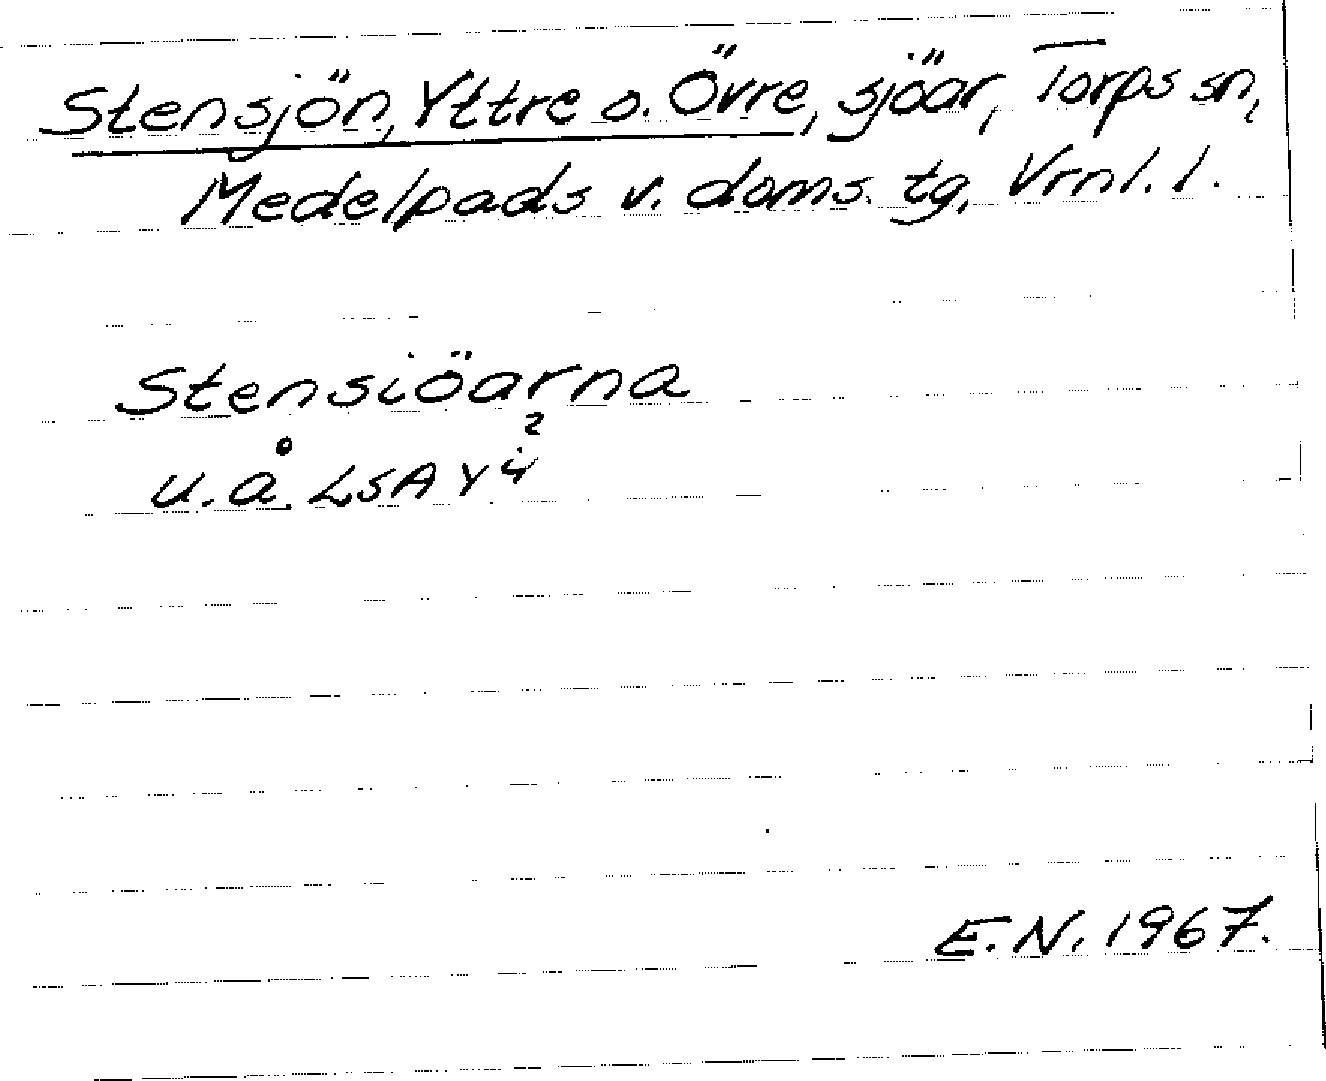 Stensjön, Yttre o. Övre, sjöar, Torps sn,
Medelpads v. doms. tg, Vrnl. l.
Stensiöarna
u.å. LSA Y ü²
E.N. 1967.